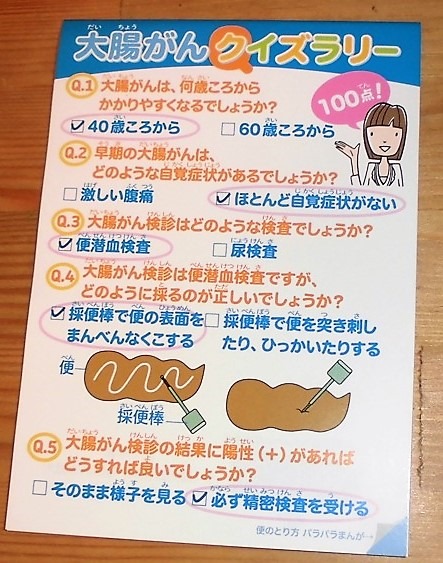 大腸がん クイズラリー
Q.1 大腸がんは、何歳ころから
かかりやすくなるでしょうか?
100点!
☑40歳ころから □60歳ころから
Q.2 早期の大腸がんは、
どのような自覚症状があるでしょうか?
□激しい腹痛 ☑ほとんど自覚症状がない
Q.3 大腸がん検診はどのような検査でしょうか?
☑便潜血検査 □尿検査
Q.4 大腸がん検診は便潜血検査ですが、
どのように採るのが正しいでしょうか?
☑採便棒で便の表面を □採便棒で便を突き刺し
まんべんなくこする たり、ひっかいたりする
便
採便棒
Q.5 大腸がん検診の結果に陽性(+)があれば
どうすれば良いでしょうか?
□そのまま様子を見る ☑必ず精密検査を受ける
便のとり方 パラパラまんが→